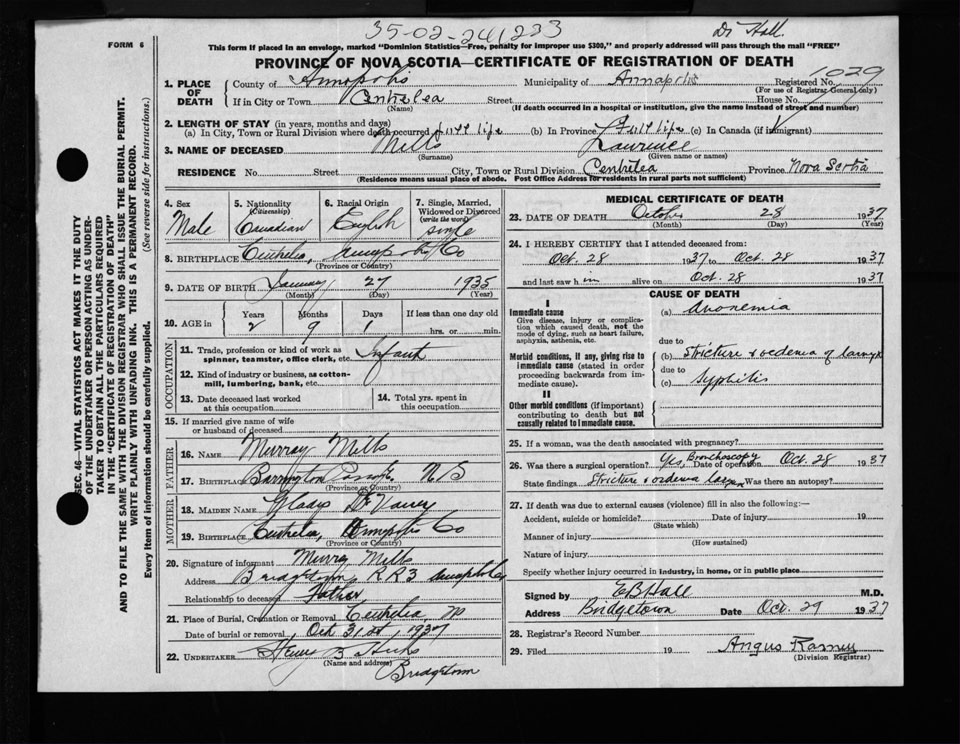 35-02-241233
Dr Hall
FORM 6
This form if placed in an envelope, marked "Dominion Statistics—Free, penalty for improper use $300," and properly addressed will pass through the mail "FREE"
PROVINCE OF NOVA SCOTIA—CERTIFICATE OF REGISTRATION OF DEATH
1029
1. PLACE OF DEATH
County of Annapolis Municipality of Annapolis Registered No.
(For use of Registrar General only)
If in City or Town Centrelea Street House No.
(Name) (If death occurred in a hospital or institution, give the name instead of street and number)
2. LENGTH OF STAY (in years, months and days)
(a) In City, Town or Rural Division where death occurred full life (b) In Province full life (c) In Canada (if immigrant)
3. NAME OF DECEASED Mills Lawrence
(Surname) (Given name or names)
RESIDENCE No. Street City, Town or Rural Division Centrelea Province Nova Scotia
(Residence means usual place of abode. Post Office Address for residents in rural parts not sufficient)
4. Sex
Male
5. Nationality
(Citizenship)
Canadian
6. Racial Origin
English
7. Single, Married, Widowed or Divorced
(write the word)
single
8. BIRTHPLACE Centrelea, Annapolis Co
(Province or Country)
9. DATE OF BIRTH January 27 1935
(Month) (Day) (Year)
10. AGE in
Years Months Days If less than one day old
2 9 1 hrs. or min.
OCCUPATION
11. Trade, profession or kind of work as spinner, teamster, office clerk, etc. Infant
12. Kind of industry or business, as cotton-mill, lumbering, bank, etc.
13. Date deceased last worked at this occupation
14. Total yrs. spent in this occupation
15. If married give name of wife or husband of deceased
FATHER
16. NAME Murray Mills
17. BIRTHPLACE Barrington N S
(Province or Country)
MOTHER
18. MAIDEN NAME Gladys
19. BIRTHPLACE Centrelea, Annapolis Co
(Province or Country)
20. Signature of informant Murray Mills
Address Bridgetown RR3 Annapolis
Relationship to deceased Father
21. Place of Burial, Cremation or Removal Centrelea,
Date of burial or removal Oct 31st, 1937
22. UNDERTAKER B Hicks
(Name and address)
Bridgetown
MEDICAL CERTIFICATE OF DEATH
23. DATE OF DEATH October 28 1937
(Month) (Day) (Year)
24. I HEREBY CERTIFY that I attended deceased from:
Oct. 28 1937 to Oct. 28 1937
and last saw him alive on Oct. 28 1937
CAUSE OF DEATH
I
Immediate cause
Give disease, injury or complication which caused death, not the mode of dying, such as heart failure, asphyxia, asthenia, etc.
(a) Anoxemia
due to
Morbid conditions, if any, giving rise to immediate cause (stated in order proceeding backwards from immediate cause).
(b) Stricture & oedema of larynx
due to
(c) Syphilis
II
Other morbid conditions (if important) contributing to death but not causally related to immediate cause.
25. If a woman, was the death associated with pregnancy?
26. Was there a surgical operation? Yes, Bronchoscopy Date of operation Oct. 28 1937
State findings Stricture & oedema larynx Was there an autopsy?
27. If death was due to external causes (violence) fill in also the following:—
Accident, suicide or homicide? Date of injury 19
(State which)
Manner of injury
(How sustained)
Nature of injury
Specify whether injury occurred in industry, in home, or in public place
Signed by E B Hall M.D.
Address Bridgetown Date Oct. 29 1937
28. Registrar's Record Number
29. Filed 19 Angus Ramey
(Division Registrar)
SEC. 46—VITAL STATISTICS ACT MAKES IT THE DUTY
OF THE UNDERTAKER OR PERSON ACTING AS UNDER-
TAKER TO OBTAIN ALL THE PARTICULARS REQUIRED
IN THE "CERTIFICATE OF REGISTRATION OF DEATH"
AND TO FILE THE SAME WITH THE DIVISION REGISTRAR WHO SHALL ISSUE THE BURIAL PERMIT.
WRITE PLAINLY WITH UNFADING INK. THIS IS A PERMANENT RECORD.
Every item of information should be carefully supplied. (See reverse side for instructions.)